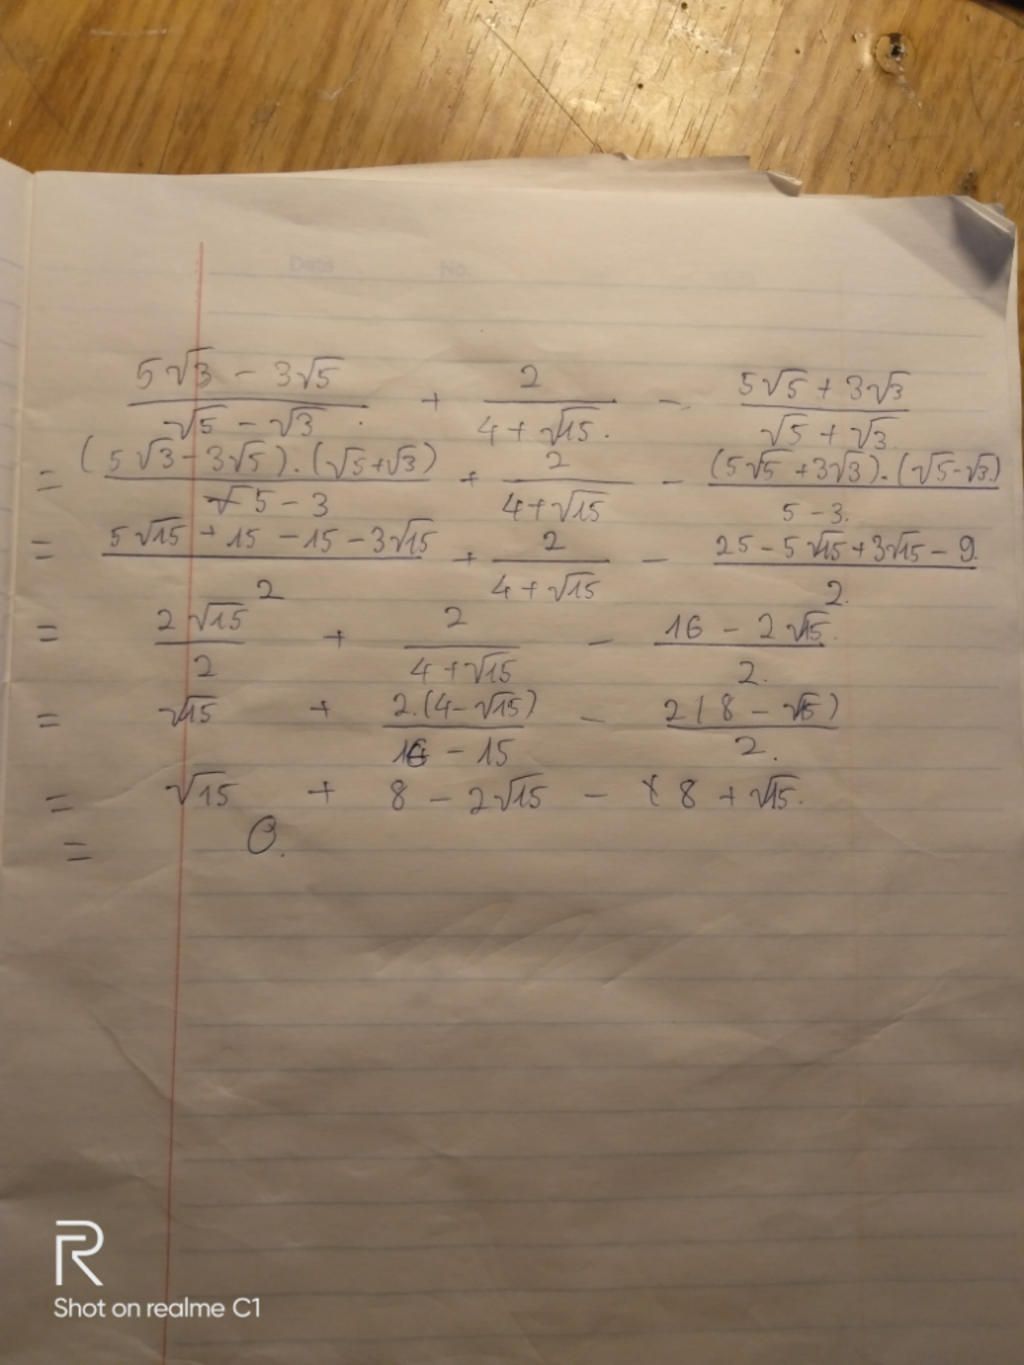 Date No.
(5√3 - 3√5)/(√5 - √3) + 2/(4 + √15) - (5√5 + 3√3)/(√5 + √3)
= ((5√3 - 3√5).(√5 + √3))/(5 - 3) + 2/(4 + √15) - ((5√5 + 3√3).(√5 - √3))/(5 - 3)
= (5√15 + 15 - 15 - 3√15)/2 + 2/(4 + √15) - (25 - 5√15 + 3√15 - 9)/2
= 2√15/2 + 2/(4 + √15) - (16 - 2√15)/2
= √15 + (2.(4 - √15))/(16 - 15) - (2(8 - √15))/2
= √15 + 8 - 2√15 - 8 + √15
= 0.
R
Shot on realme C1